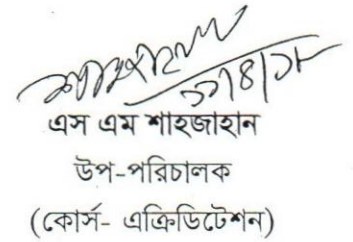 এস এম শাহজাহান
উপ-পরিচালক
(কোর্স- এক্রিডিটেশন)